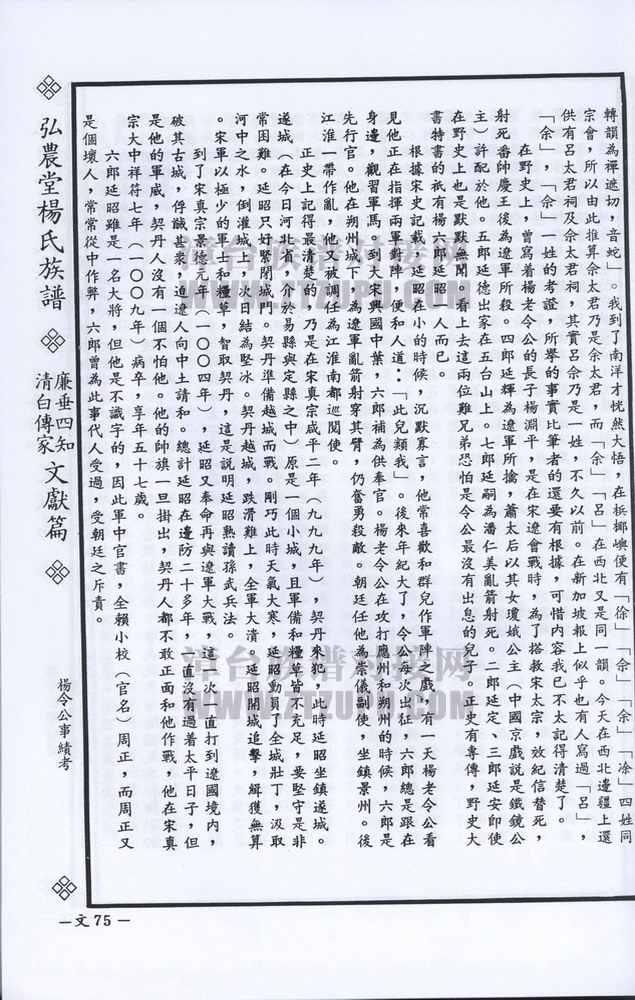 轉韻為禪遮切，音蛇」。我到了南洋才恍然大悟，在梹榔嶼便有「徐」「余」「涂」「凃」四姓同
宗會，所以由此推算佘太君乃是余太君，而「余」「呂」在西北又是同一韻。今天在西北邊疆上還
供有呂太君祠及佘太君祠，其實呂佘乃是一姓，不久以前。在新加坡報上似乎也有人寫過「呂」，
「余」，「佘」一姓的考證，所舉的事實比筆者的還要有根據，可惜内容我已不太記得清楚了。
在野史上，曾寫着楊老令公的長子楊淵平，是在宋遼會戰時，為了搭救宋太宗，效紀信替死，
射死番帥慶王後為遼軍所殺。四郎延輝為遼軍所擒，蕭太后以其女瓊娥公主（中國京戲說是鐵鏡公
主）許配於他。五郎延德出家在五台山上。七郎延嗣為潘仁美亂箭射死。二郎延定、三郎延安即使
在野史上也是默默無聞，看上去這兩位難兄弟恐怕是令公最沒有出息的兒子。正史有專傳，野史大
書特書的祇有楊六郎延昭一人而已。
根據宋史記載，延昭在小的時候，沉默寡言，他常喜歡和群兒作軍陣之戲，有一天楊老令公看
見他正在指揮兩軍對陣，便和人道：「此兒類我」。後來年紀大了，令公每次出征，六郎總是跟在
身邊，觀習軍馬。到大宋興國中葉，六郎補為供奉官。楊老令公在攻打應州和朔州的時候，六郎是
先行官。他在朔州城下，為遼軍亂箭射穿其臂，仍奮勇殺敵。朝廷任他為崇儀副使，坐鎮景州。後
江淮一帶作亂，他又被調任為江淮南都巡閱使。
正史上記得最清楚的，乃是在宋真宗咸平二年（九九九年），契丹來犯，此時延昭坐鎮遂城。
遂城（在今日河北省，介於易縣與定縣之中）原是一個小城，且軍備和糧草皆不充足，要堅守是非
常困難。延昭只好緊閉城門。契丹準備越城而戰。剛巧此時天氣大寒，延昭動員了全城壯丁，汲取
河中之水，倒灌城上，次日結為堅冰。契丹越城，跌滑難上，全軍大潰。延昭開城追擊，緝獲無算
。宋軍以極少的軍士和糧草，智取契丹，這是說明延昭熟讀孫武兵法。
到了宋真宗景德元年（一００四年），延昭又奉命再與遼軍大戰，這一次一直打到遼國境内，
破其古城，俘馘甚衆，迫遼人向中土請和。總計延昭在邊防二十多年，一直沒有過着太平日子，但
是他的軍威，契丹人沒有一個不怕他。他的帥旗一旦掛出，契丹人都不敢正面和他作戰，他在宋真
宗大中祥符七年（一００九年）病卒，享年五十七歲。
六郎延昭雖是一名大將，但他是不識字的，因此軍中官書，全賴小校（官名）周正，而周正又
是個壞人，常常從中作弊，六郎曾為此事代人受過，受朝廷之斥責。
弘農堂楊氏族譜
廉垂四知
清白傳家
文獻篇
楊令公事績考
－文75－
漳台族谱对接网
WWW.ZTZUPU.COM
漳台族谱对接网
WWW.ZTZUPU.COM